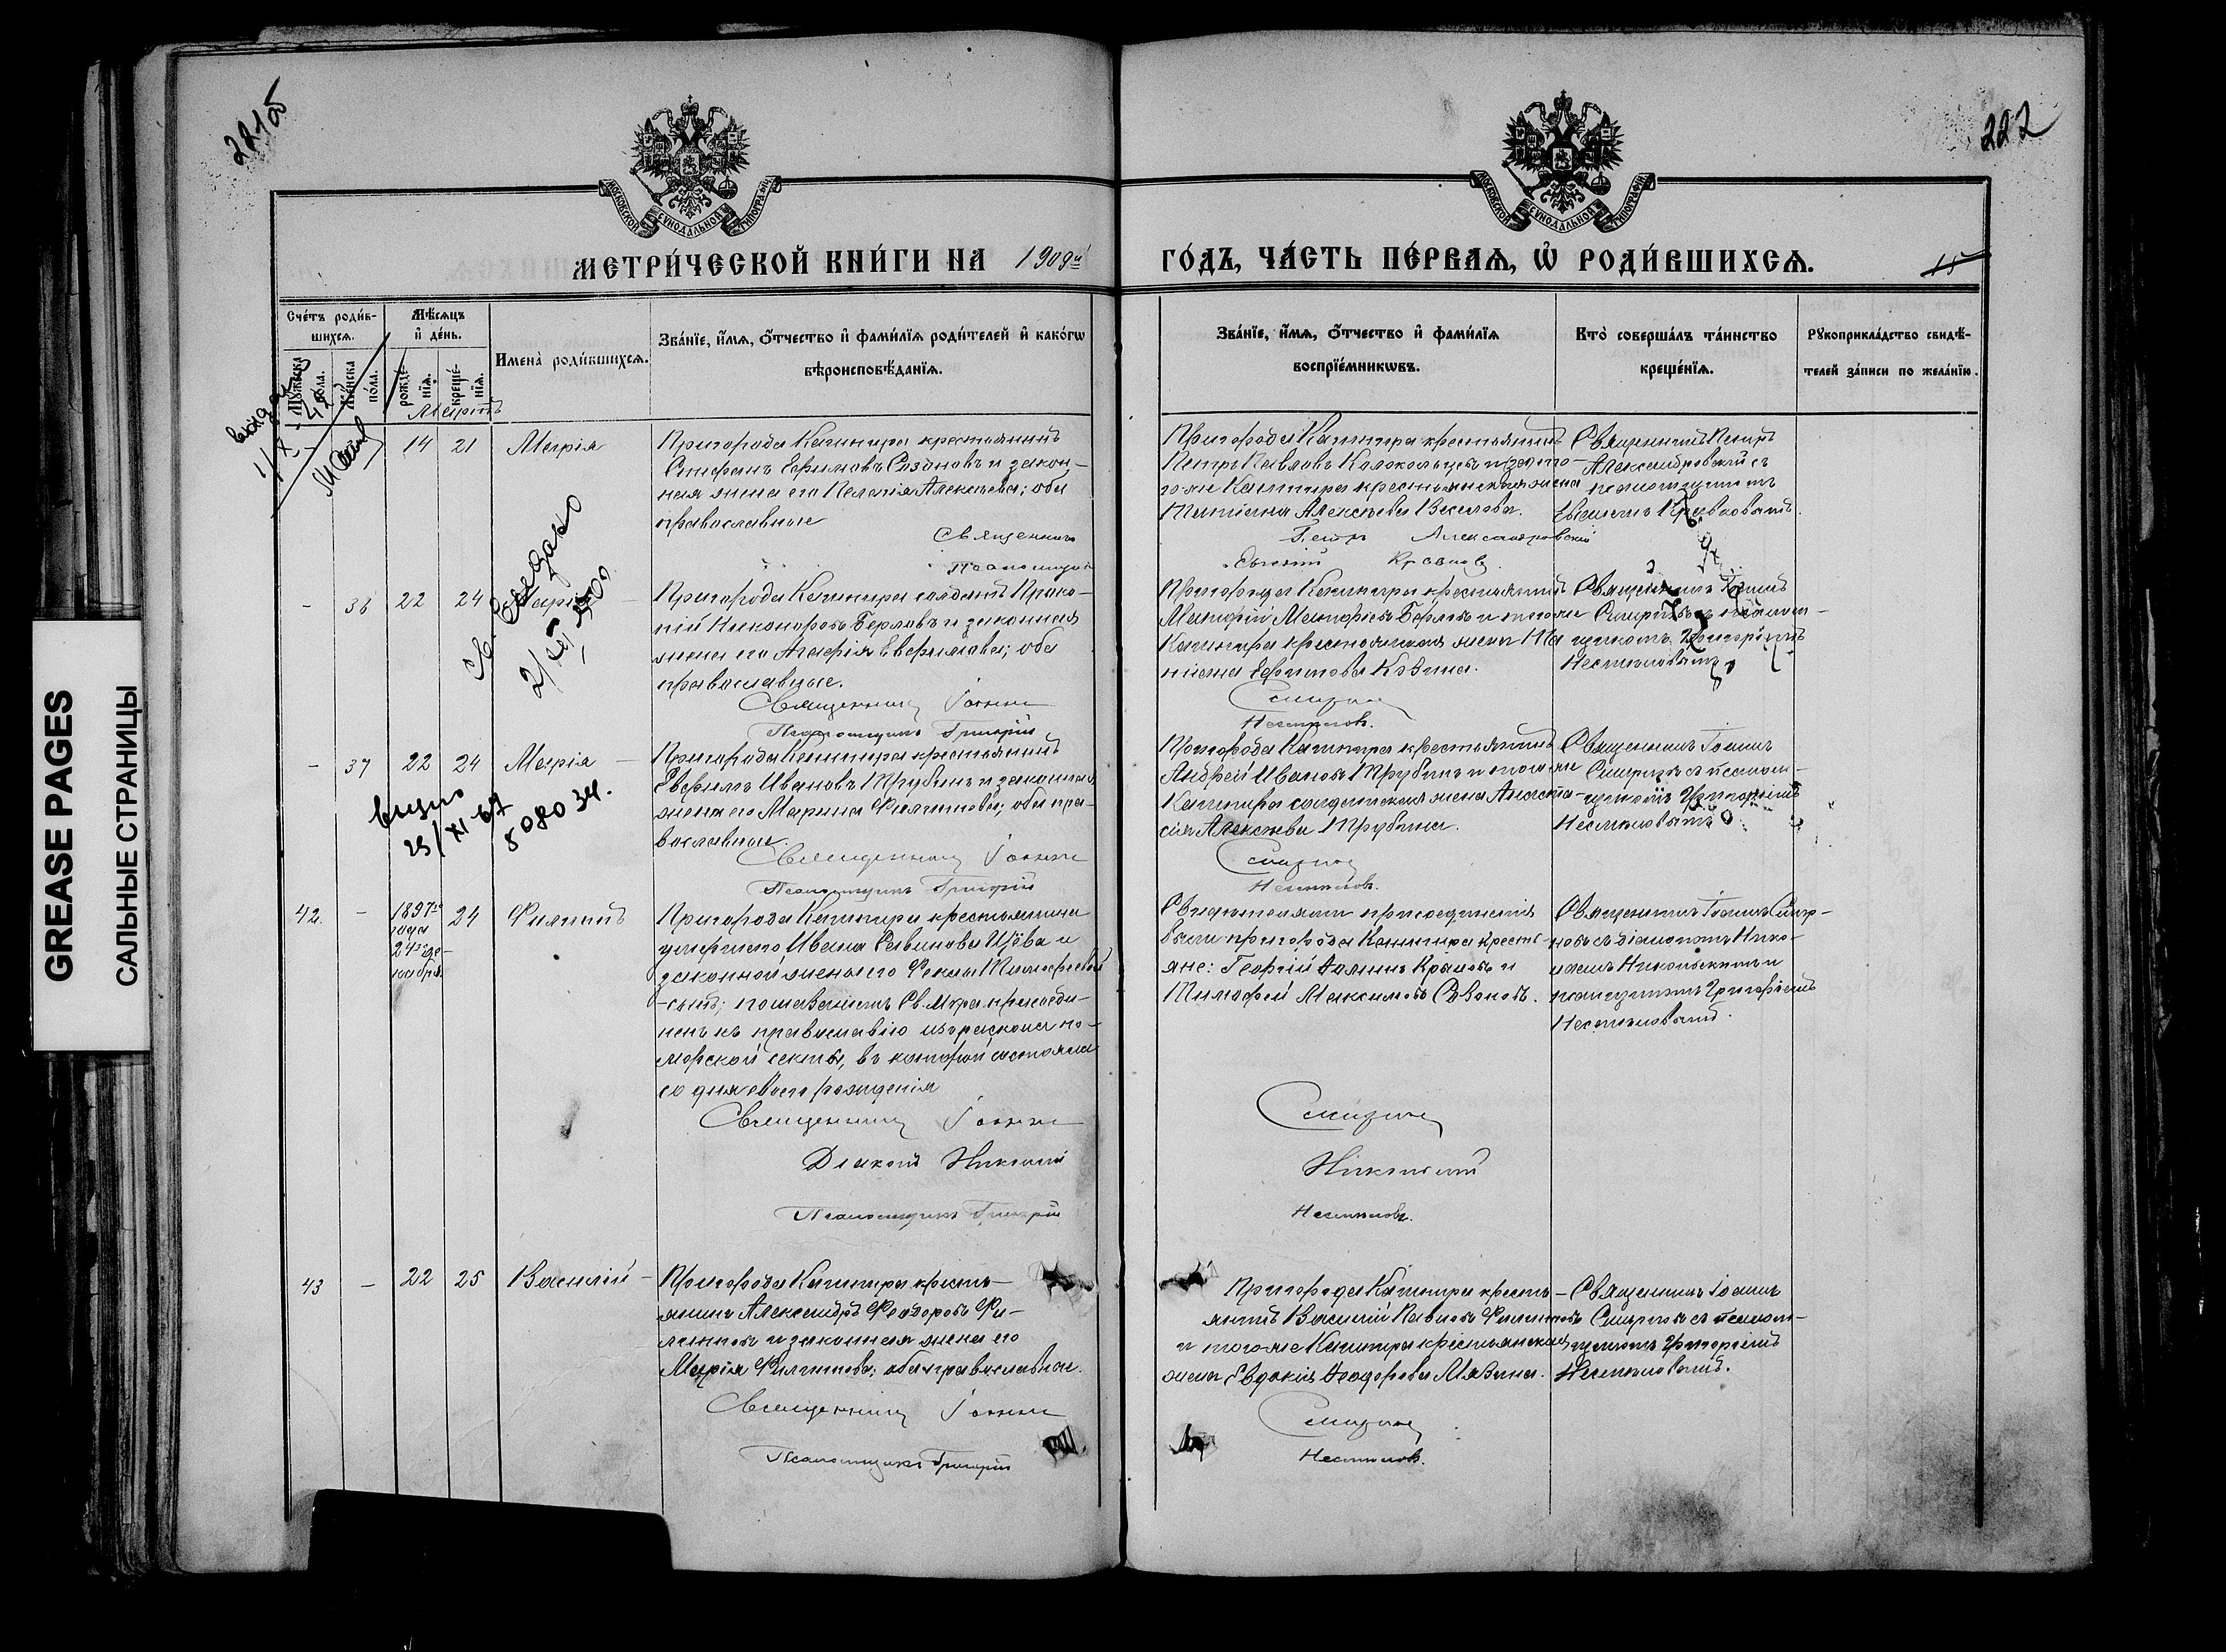 221об
222
МОСКОВСКОЙ СѴНОДАЛЬНОЙ ТИПОГРАФІИ
МОСКОВСКОЙ СѴНОДАЛЬНОЙ ТИПОГРАФІИ
МЕТРИ́ЧЕСКОЙ КНИ́ГИ НА 1909й
ГО́ДЪ, ЧА́СТЬ ПЕ́РВАѦ, Ѡ҆ РОДИ́ВШИХСѦ.
15
Сче́тъ роди́в-
шихсѧ.
Мꙋ́жеска по́ла.
Же́нска по́ла.
Мѣ́сѧцъ
и҆ де́нь.
рожде́-
нїѧ.
креще́-
нїѧ.
Имена̀ роди́вшихсѧ.
Зва́нїе, и҆́мѧ, ѻ҆́тчество и҆ фами́лїѧ роди́телей и҆ како́гѡ
вѣроисповѣ́данїѧ.
Зва́нїе, и҆́мѧ, ѻ҆́тчество и҆ фами́лїѧ
воспрїе́мникѡвъ.
Кто̀ соверша́лъ та́инство
креще́нїѧ.
Рꙋкоприкла́дство свидѣ́-
телей за́писи по жела́нїю.
Мартъ
14 21 Марія
Пригорода Кашпира крестьянинъ
Стефанъ Ефимовъ Сазоновъ и закон-
ная жена его Пелагія Алексѣева; оба
православные
Священникъ
Псаломщикъ
Пригорода Кашпира крестьянинъ
Петръ Павловъ Колокольцевъ и того-
же Кашпира крестьянская жена
Татіана Алексѣева
Петръ Александровскій
Евгеній
Священникъ Петръ
Александровскій съ
псаломщикомъ
Евгеніемъ
- 36 22 24 Марія
Пригорода Кашпира солдатъ Проко-
пій Никоноровъ Берловъ и законная
жена его Агафія Евфимова; оба
православные.
Священникъ Іоаннъ
Псаломщикъ Григорій
Пригорода Кашпира крестьянинъ
и того же
Кашпира крестьянская жена
Ефимова
Смирнов
Несмѣловъ.
Священникъ Іоаннъ
Смирновъ съ псалом-
щикомъ Григоріемъ
Несмѣловымъ
- 37 22 24 Марія
Пригорода Кашпира крестьянинъ
Евфимъ Ивановъ Трубинъ и законная
жена его Марина Филиппова; оба пра-
вославные.
Священникъ Іоаннъ
Псаломщикъ Григорій
Пригорода Кашпира крестьянинъ
Андрей Ивановъ Трубинъ и того же
Кашпира солдатская жена Анаста-
сія Алексѣева Трубина.
Смирнов
Несмѣловъ.
Священникъ Іоаннъ
Смирновъ съ псалом-
щикомъ Григоріемъ
Несмѣловымъ
выдано
23/XI 67
508034.
42. - 1897го
года
24го де-
кабря. 24 Филиппъ
Пригорода Кашпира крестьянина
умершаго Ивана Саввинова и
законной жены его Феклы Тимофеевой
-сынъ; помазаніемъ Св. Мѵра присоеди-
ненъ къ православію изъ раскола по-
морской секты, въ которой состоялъ
со дня своего рожденія
Священникъ Іоаннъ
Діаконъ Николай
Псаломщикъ Григорій
Свидѣтелями присоединенія
были пригорода Кашпира кресть-
яне: Георгій и
Тимофей Максимовъ
Смирнов
Никольскій
Несмѣловъ.
Священникъ Іоаннъ Смир-
новъ съ діакономъ Нико-
лаемъ Никольскимъ и
псаломщикомъ Григоріемъ
Несмѣловымъ.
43 - 22 25 Василій
Пригорода Кашпира кресть-
янинъ Александръ Феодоровъ Фи-
липповъ и законная жена его
Марія Филиппова; оба православные.
Священникъ Іоаннъ
Псаломщикъ Григорій
Пригорода Кашпира кресть-
янинъ Василій Павловъ Филипповъ
и того же Кашпира крестьянская
жена Евдокія Феодорова Мязина.
Смирнов
Несмѣловъ.
Священникъ Іоаннъ
Смирновъ съ псалом-
щикомъ Григоріемъ
Несмѣловымъ.
GREASE PAGES
САЛЬНЫЕ СТРАНИЦЫ